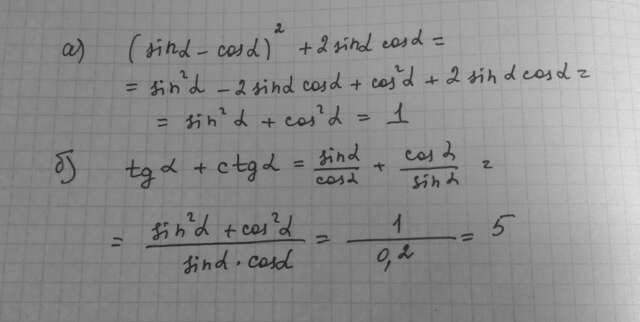 а) (sinα - cosα)² + 2 sinα cosα =
= sin²α - 2 sinα cosα + cos²α + 2 sinα cosα =
= sin²α + cos²α = 1
б) tgα + ctgα = sinα/cosα + cosα/sinα =
= (sin²α + cos²α)/(sinα · cosα) = 1/0,2 = 5